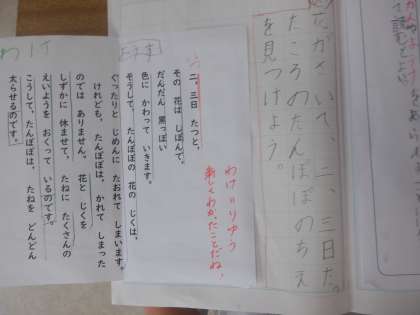 がさいて、二、三日たっ
たころのたんぽぽのちえ
を見つけよう。
わけ=りゆう
新しくわかったことだね。
ようす
二、三日 たつと、
その 花は しぼんで、
だんだん 黒っぽい
色に かわって いきます。
そうして、たんぽぽの 花の じくは、
ぐったりと じめんに たおれて しまいます。
わけ
けれども、たんぽぽは、かれて しまった
のでは ありません。花と じくを
しずかに 休ませて、たねに たくさんの
えいようを おくって いるのです。
こうして、たんぽぽは、たねを どんどん
太らせるのです。